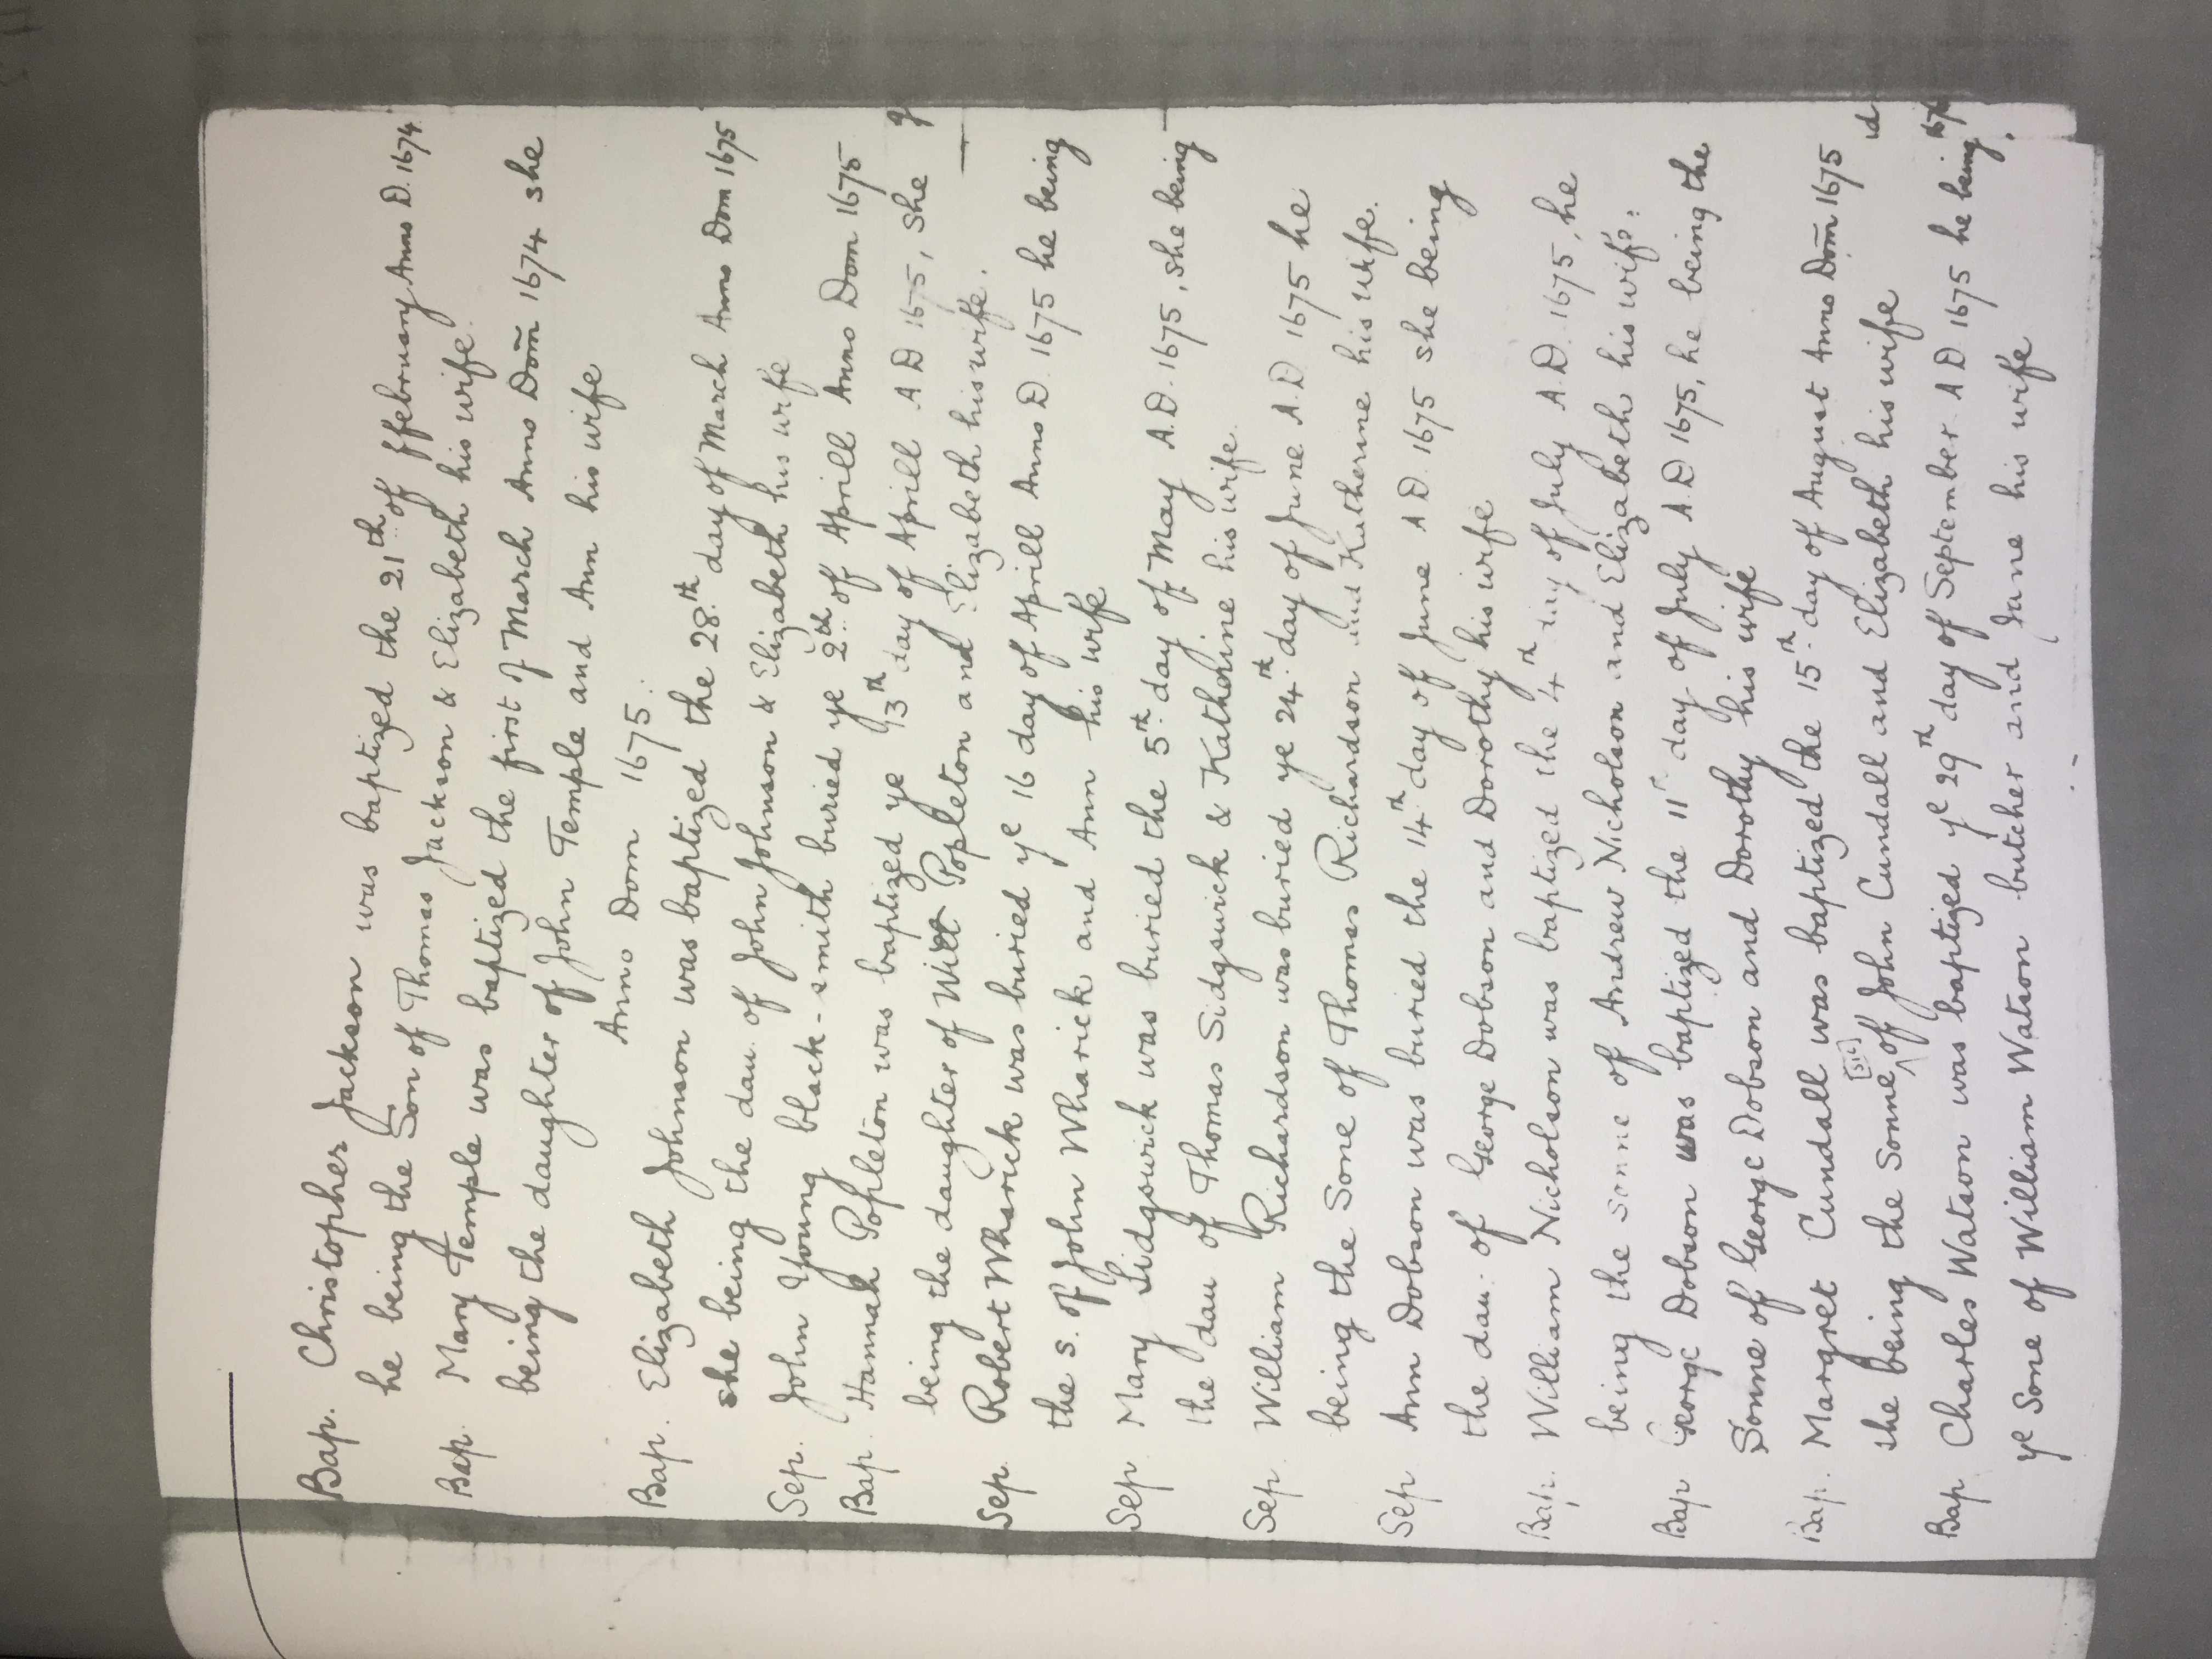 Bap. Christopher Jackson was baptized the 21th of ffebruary Anno D. 1674
he being the Son of Thomas Jackson & Elizabeth his wife.
Bap. Mary Temple was baptized the first of March Anno Dom̄ 1674 she
being the daughter of John Temple and Ann his wife
Anno Dom 1675.
Bap. Elizabeth Johnson was baptized the 28th day of March Anno Dom 1675
she being the dau. of John Johnson & Elizabeth his wife
Sep. John Young black-smith buried ye 2th of Aprill Anno Dom 1675
Bap. Hannah Popleton was baptized ye 13th day of Aprill A D 1675, she
being the daughter of Will Popleton and Elizabeth his wife.
Sep. Robert Wharick was buried ye 16 day of Aprill Anno D. 1675 he being
the s. of John Wharick and Ann his wife
Sep. Mary Sidgswick was buried the 5th day of May A.D. 1675, she being
the dau of Thomas Sidgswick & Katherine his wife.
Sep. William Richardson was buried ye 24th day of June A.D 1675 he
being the Sone of Thomas Richardson and Katherine his wife.
Sep Ann Dobson was buried the 14th day of June A.D. 1675 she being
the dau: of George Dobson and Dorothy his wife
Bap. William Nicholson was baptized the 4th day of July A.D. 1675, he
being the sonne of Andrew Nicholson and Elizabeth his wife:
Bap George Dobson was baptized the 11th day of July A.D 1675, he being the
Sonne of George Dobson and Dorothy his wife
Bap. Margret Cundall was baptized the 15th day of August Anno Dom̄ 1675
she being the Sonne [sic] of John Cundall and Elizabeth his wife
Bap. Charles Watson was baptized ye 29th day of September. A D. 1675 he being
ye Sone of William Watson butcher and Jane his wife